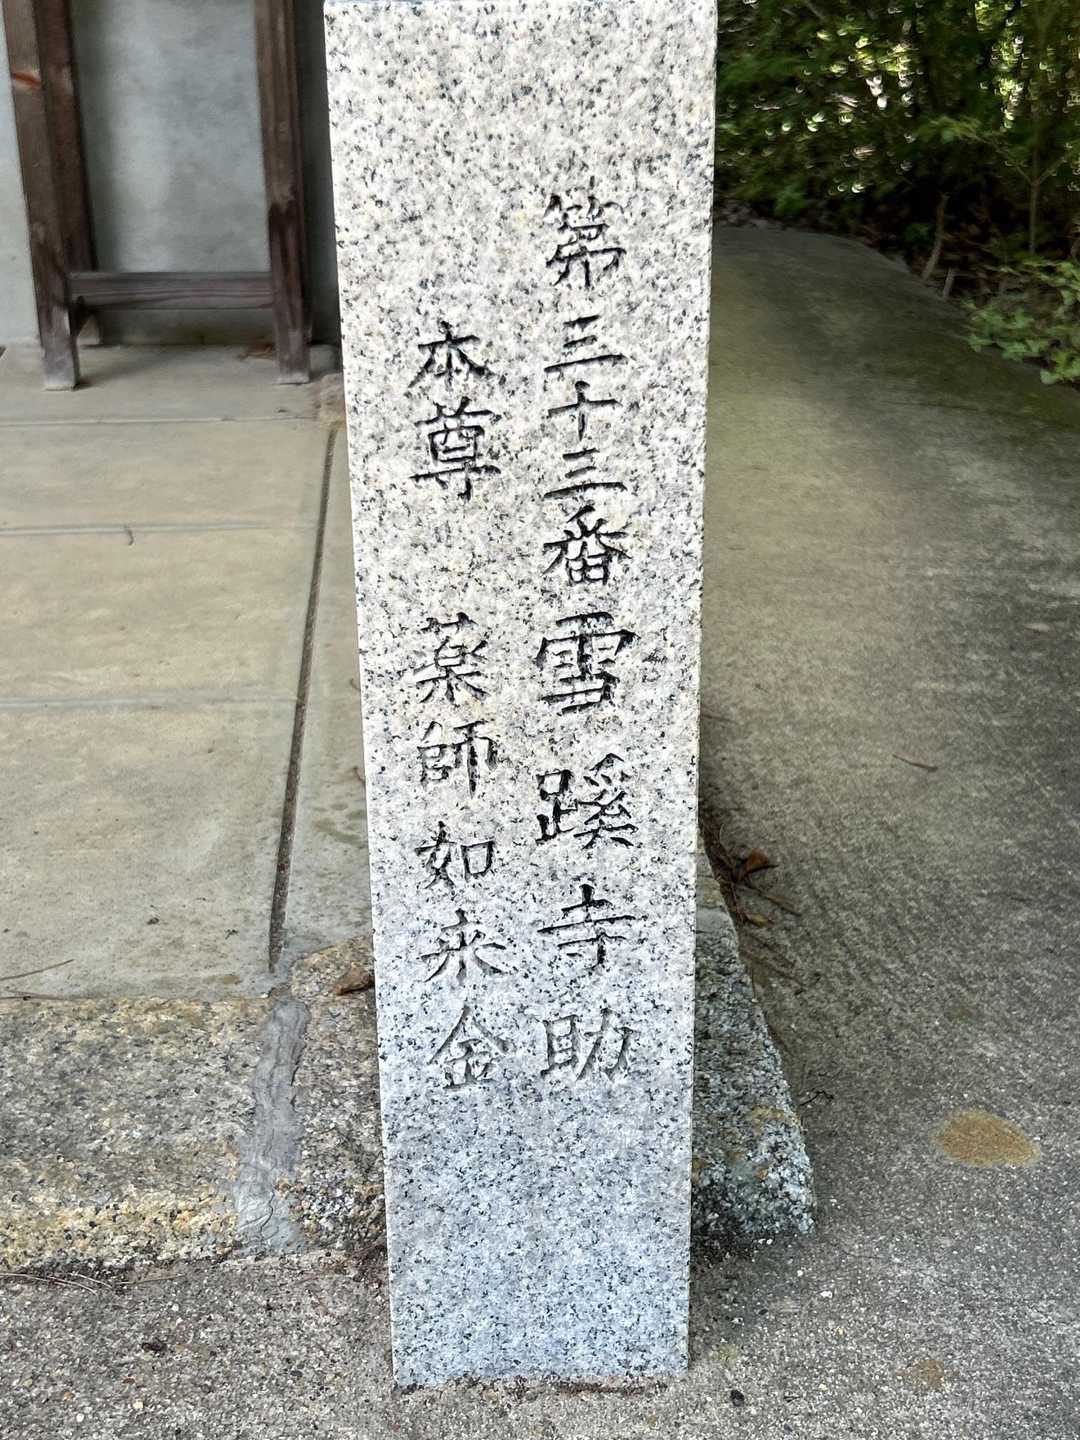 第三十三番雪蹊寺助
本尊 薬師如来金